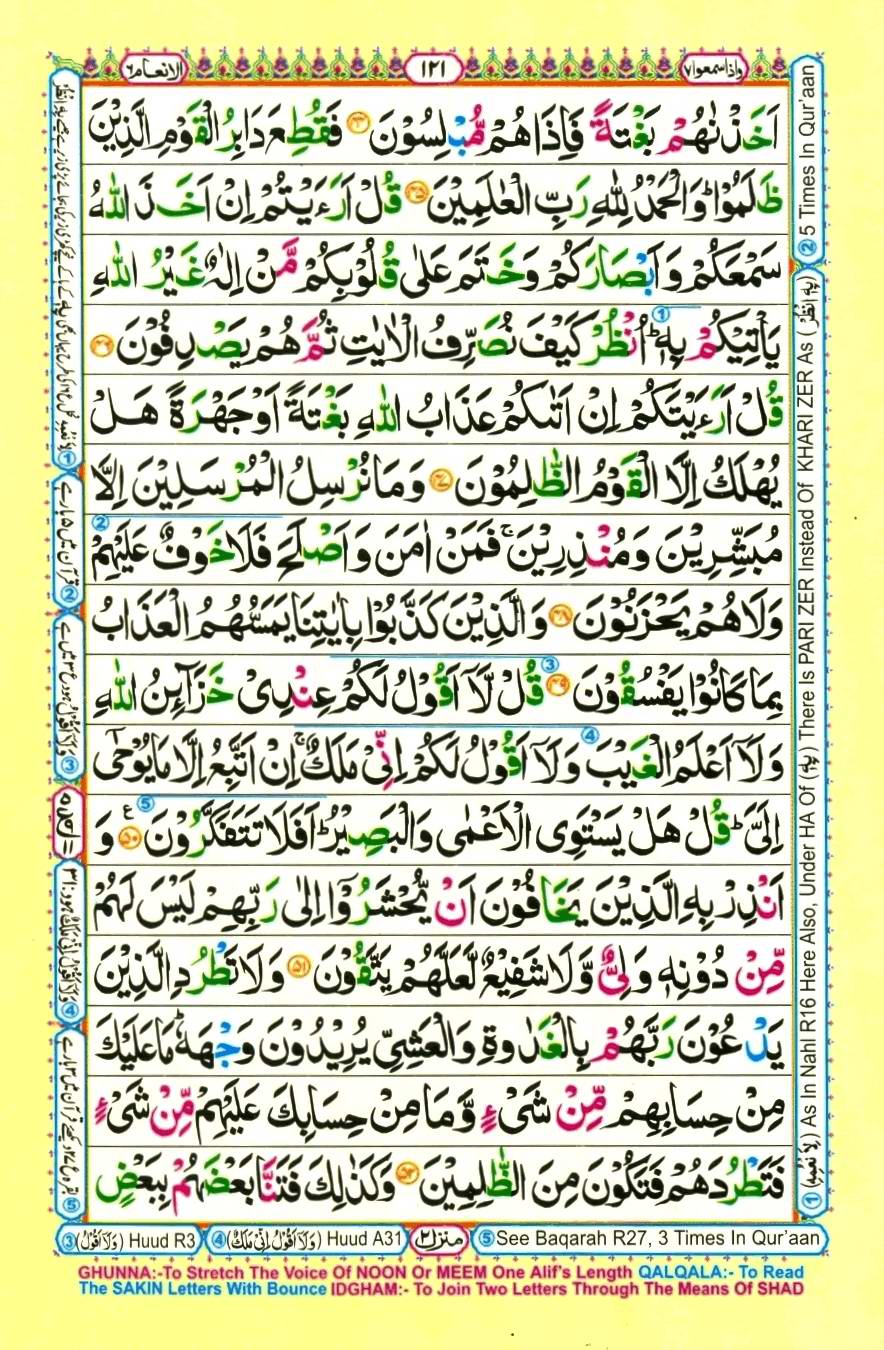 الانعام ٦
١٢١
واذا سمعوا ٧
اَخَذْنٰهُمْ بَغْتَةً فَاِذَا هُمْ مُّبْلِسُوْنَ ۝ فَقُطِعَ دَابِرُ الْقَوْمِ الَّذِيْنَ
ظَلَمُوْا ؕ وَالْحَمْدُ لِلّٰهِ رَبِّ الْعٰلَمِيْنَ ۝۴۵ قُلْ اَرَءَيْتُمْ اِنْ اَخَذَ اللّٰهُ
سَمْعَكُمْ وَاَبْصَارَكُمْ وَخَتَمَ عَلٰى قُلُوْبِكُمْ مَّنْ اِلٰهٌ غَيْرُ اللّٰهِ
يَاْتِيْكُمْ بِهٖ ؕ اُنْظُرْ كَيْفَ نُصَرِّفُ الْاٰيٰتِ ثُمَّ هُمْ يَصْدِفُوْنَ ۝۴۶
قُلْ اَرَءَيْتَكُمْ اِنْ اَتٰىكُمْ عَذَابُ اللّٰهِ بَغْتَةً اَوْ جَهْرَةً هَلْ
يُهْلَكُ اِلَّا الْقَوْمُ الظّٰلِمُوْنَ ۝۴۷ وَمَا نُرْسِلُ الْمُرْسَلِيْنَ اِلَّا
مُبَشِّرِيْنَ وَمُنْذِرِيْنَ ۚ فَمَنْ اٰمَنَ وَاَصْلَحَ فَلَا خَوْفٌ عَلَيْهِمْ
وَلَا هُمْ يَحْزَنُوْنَ ۝۴۸ وَالَّذِيْنَ كَذَّبُوْا بِاٰيٰتِنَا يَمَسُّهُمُ الْعَذَابُ
بِمَا كَانُوْا يَفْسُقُوْنَ ۝۴۹ قُلْ لَّاۤ اَقُوْلُ لَكُمْ عِنْدِىْ خَزَآئِنُ اللّٰهِ
وَلَاۤ اَعْلَمُ الْغَيْبَ وَلَاۤ اَقُوْلُ لَكُمْ اِنِّىْ مَلَكٌ ۚ اِنْ اَتَّبِعُ اِلَّا مَا يُوْحٰٓى
اِلَىَّ ؕ قُلْ هَلْ يَسْتَوِى الْاَعْمٰى وَالْبَصِيْرُ ؕ اَفَلَا تَتَفَكَّرُوْنَ ۝۵۰ وَ
اَنْذِرْ بِهِ الَّذِيْنَ يَخَافُوْنَ اَنْ يُّحْشَرُوْۤا اِلٰى رَبِّهِمْ لَيْسَ لَهُمْ
مِّنْ دُوْنِهٖ وَلِىٌّ وَّلَا شَفِيْعٌ لَّعَلَّهُمْ يَتَّقُوْنَ ۝۵۱ وَلَا تَطْرُدِ الَّذِيْنَ
يَدْعُوْنَ رَبَّهُمْ بِالْغَدٰوةِ وَالْعَشِىِّ يُرِيْدُوْنَ وَجْهَهٗ ؕ مَا عَلَيْكَ
مِنْ حِسَابِهِمْ مِّنْ شَىْءٍ وَّمَا مِنْ حِسَابِكَ عَلَيْهِمْ مِّنْ شَىْءٍ
فَتَطْرُدَهُمْ فَتَكُوْنَ مِنَ الظّٰلِمِيْنَ ۝۵۲ وَكَذٰلِكَ فَتَنَّا بَعْضَهُمْ بِبَعْضٍ
① As In Nahl R16 Here Also, Under HA Of (بِهٖ) There Is PARI ZER Instead Of KHARI ZER As (بِهِ انْظُرْ)
② 5 Times In Qur'aan
② قرآن میں ۵ بار ہے
③ (وَلَاۤ اَقُوْلُ) Huud R3
④ (وَلَاۤ اَقُوْلُ اِنِّىْ مَلَكٌ) Huud A31
منزل ۲
⑤ See Baqarah R27, 3 Times In Qur'aan
GHUNNA:-To Stretch The Voice Of NOON Or MEEM One Alif's Length QALQALA:- To Read
The SAKIN Letters With Bounce IDGHAM:- To Join Two Letters Through The Means Of SHAD